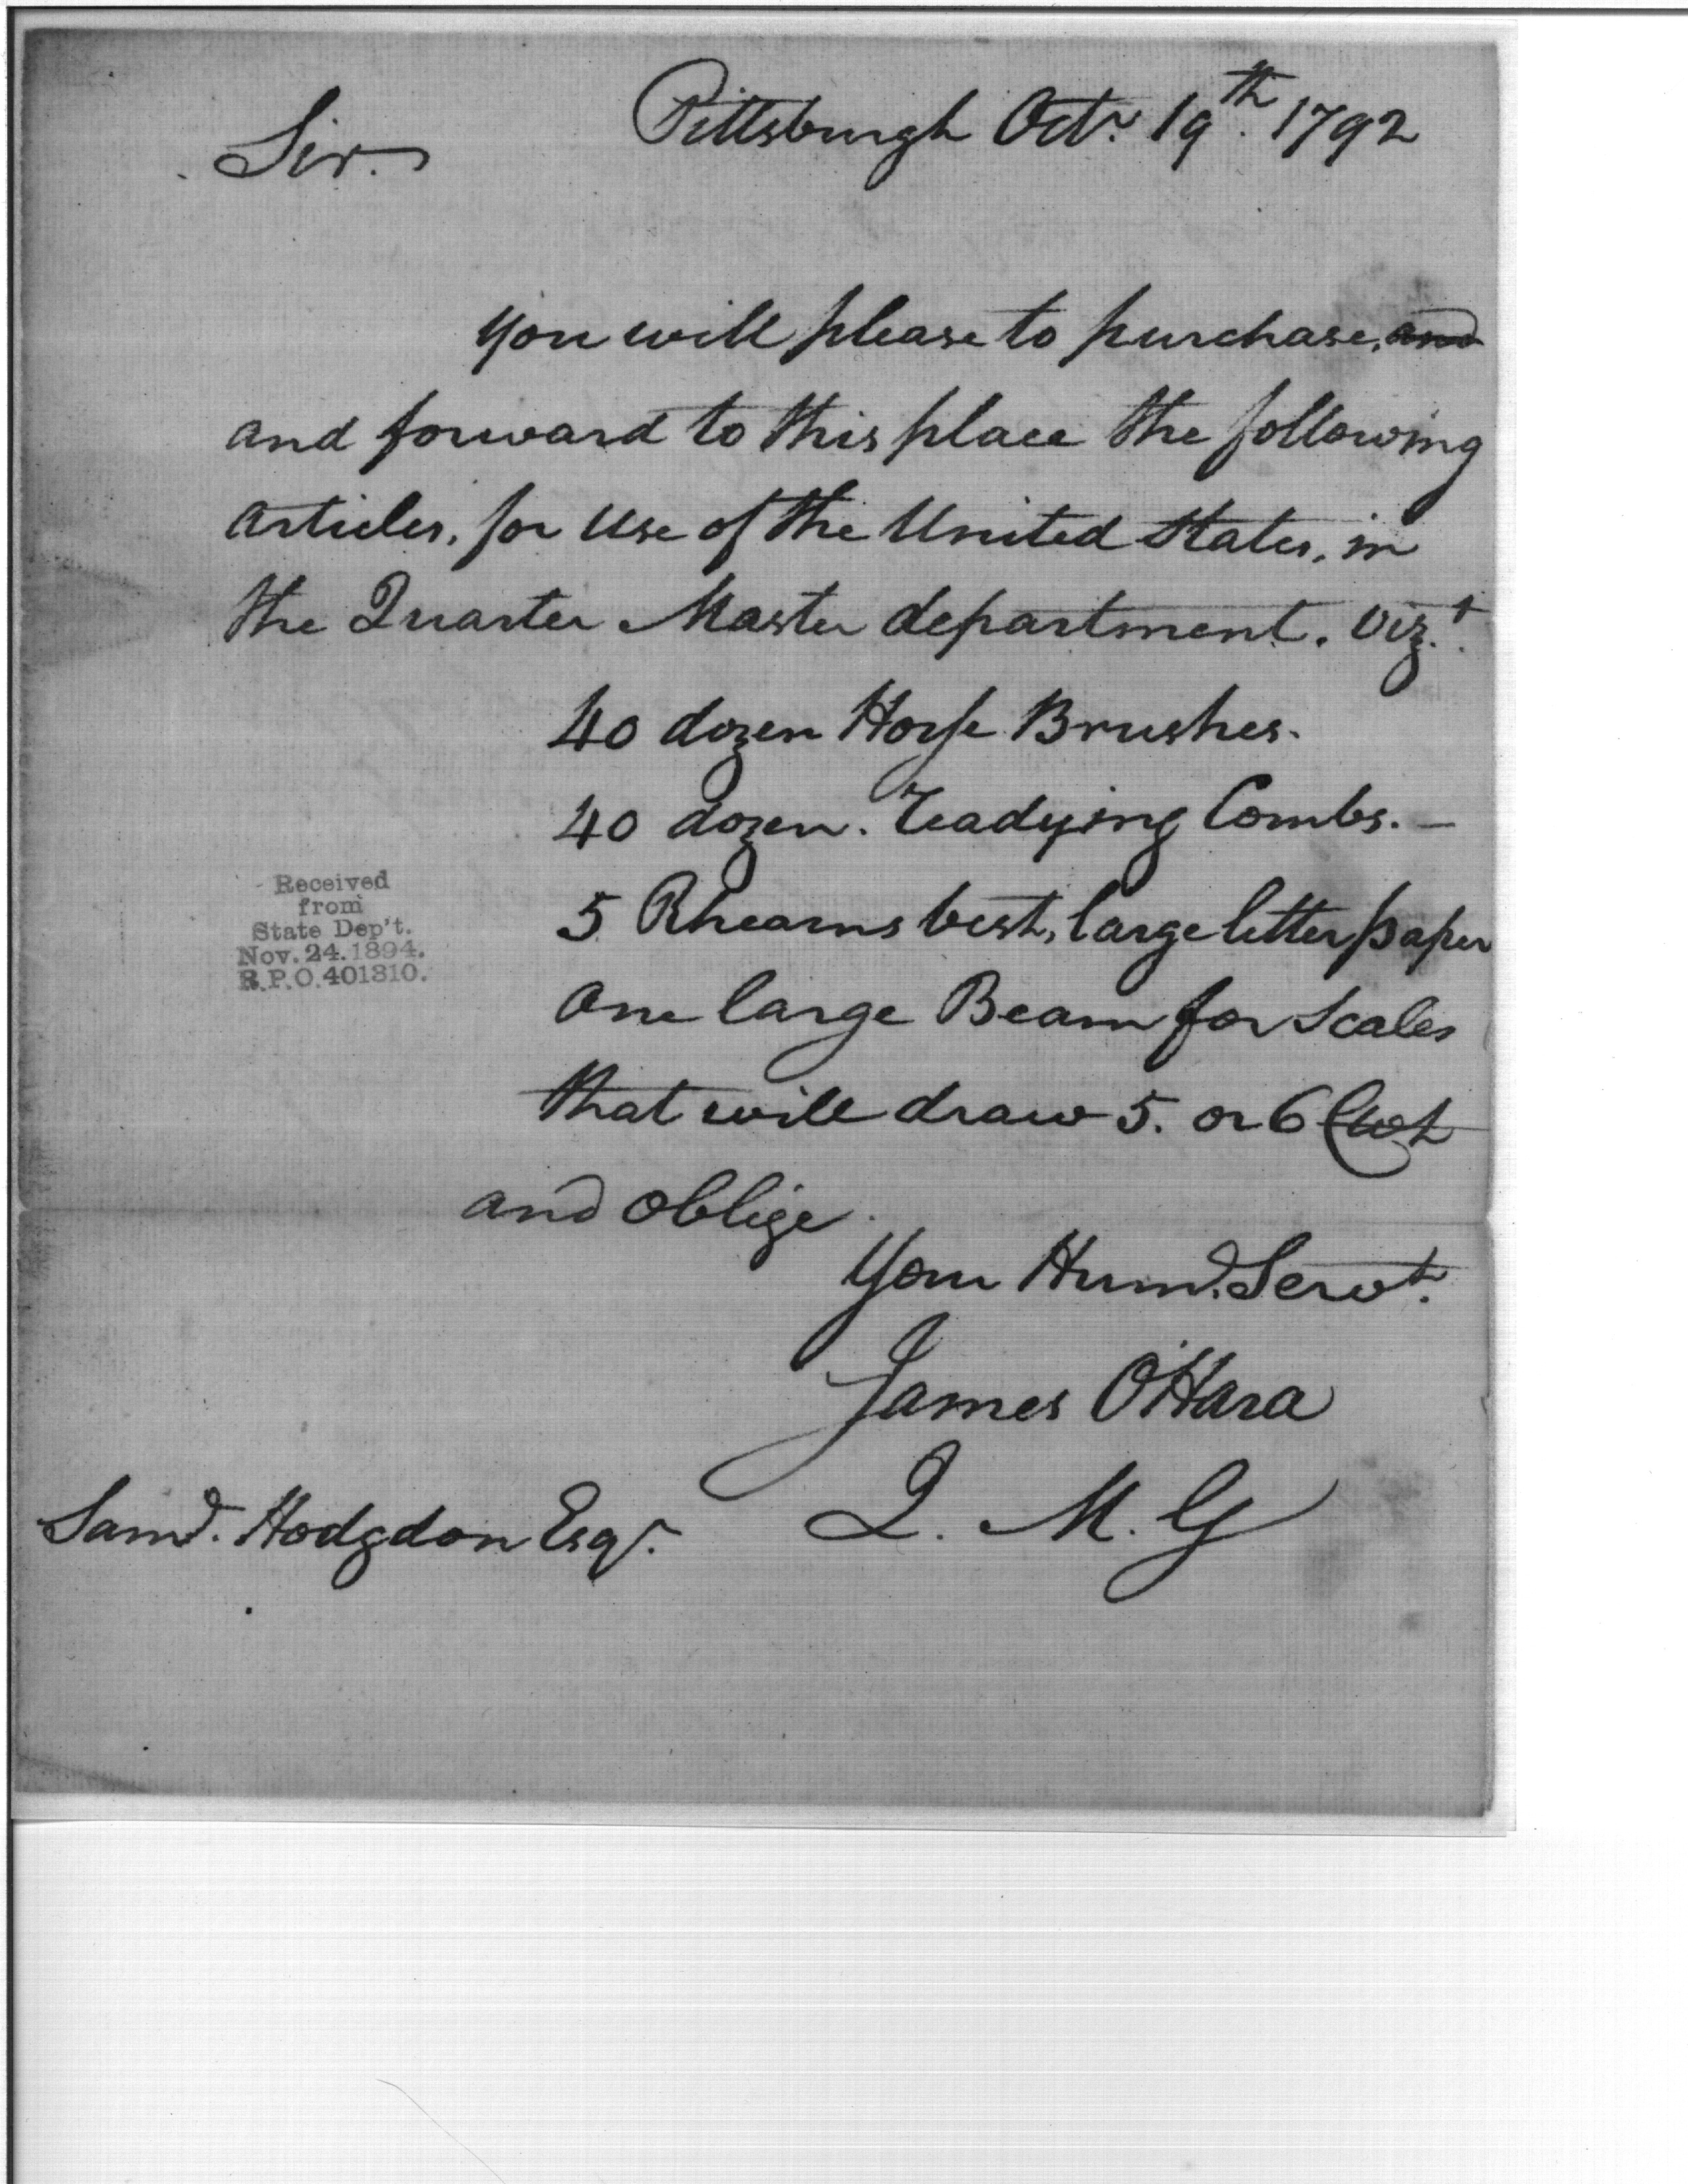 Pittsburgh Octr. 19th. 1792
Sir.
You will please to purchase, and
and forward to this place the following
articles, for use of the United States, in
the Quarter Master department. Vizt.
40 dozen Horse Brushes.
40 dozen. Teadying Combs. —
5 Rheams best, large letter paper
One large Beam for Scales
that will draw 5. or 6 Cwt
and oblige
Your Huml. Servt.
James O'Hara
Q. M. G
Saml. Hodgdon Esqr.
Received
from
State Dep't.
Nov. 24. 1894.
R.P.O. 401310.